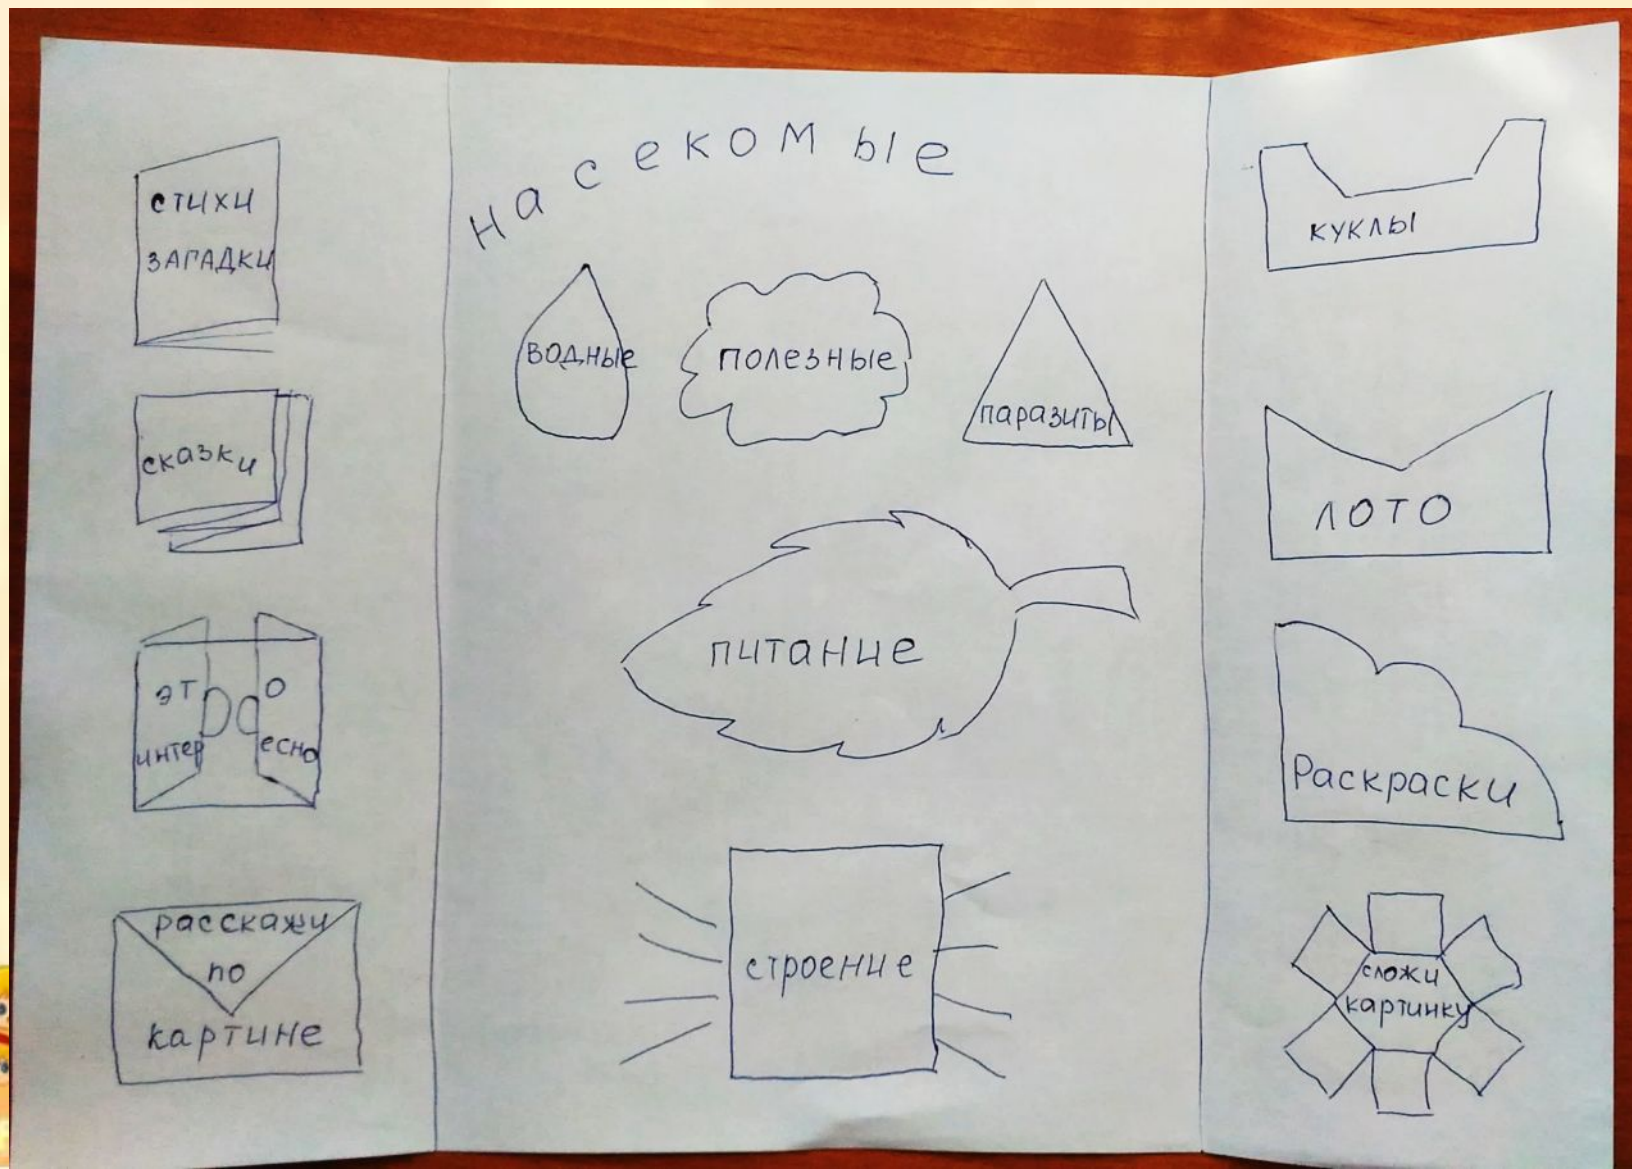 стихи
ЗАГАДКИ
сказки
эт о
интер есно
расскажи
по
картине
насекомые
водные
полезные
паразиты
питание
строение
куклы
ЛОТО
Раскраски
сложи
картинку